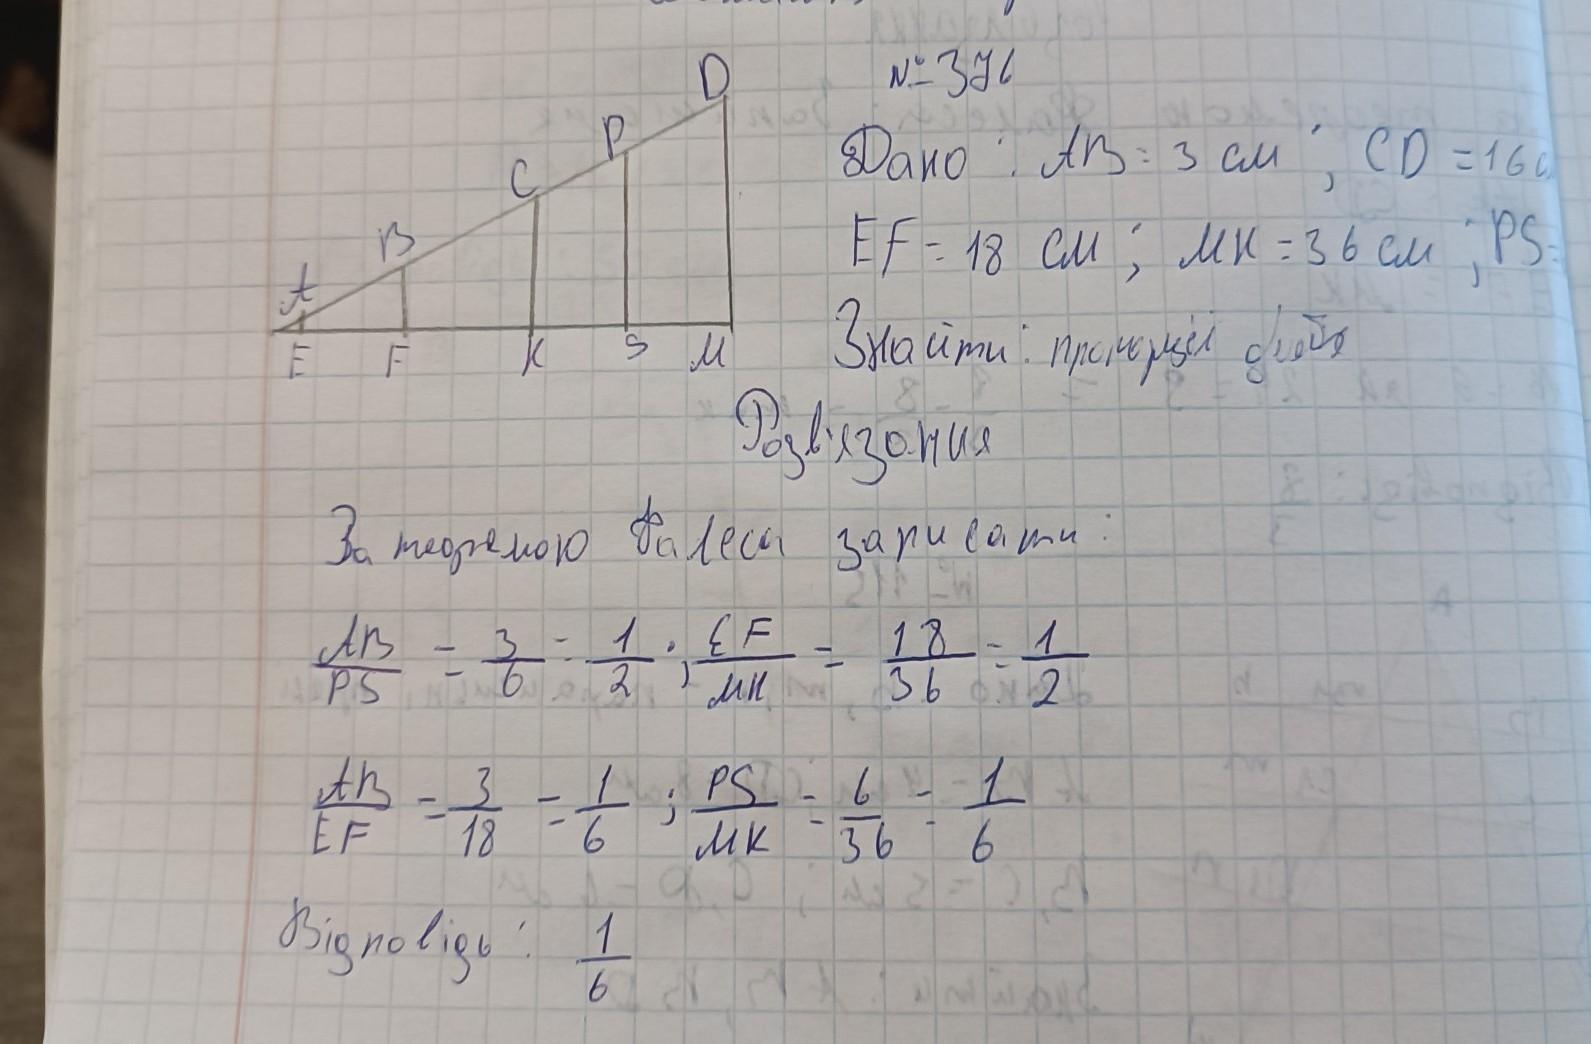 № 376
D
P
C
B
A
E F K S M
Дано: AB = 3 см; CD = 16 с
EF = 18 см; MK = 36 см; PS =
Знайти: пропорції
Розв'язання
За теоремою Фалеса записати:
AB/PS = 3/6 = 1/2; EF/MK = 18/36 = 1/2
AB/EF = 3/18 = 1/6; PS/MK = 6/36 = 1/6
Відповідь: 1/6